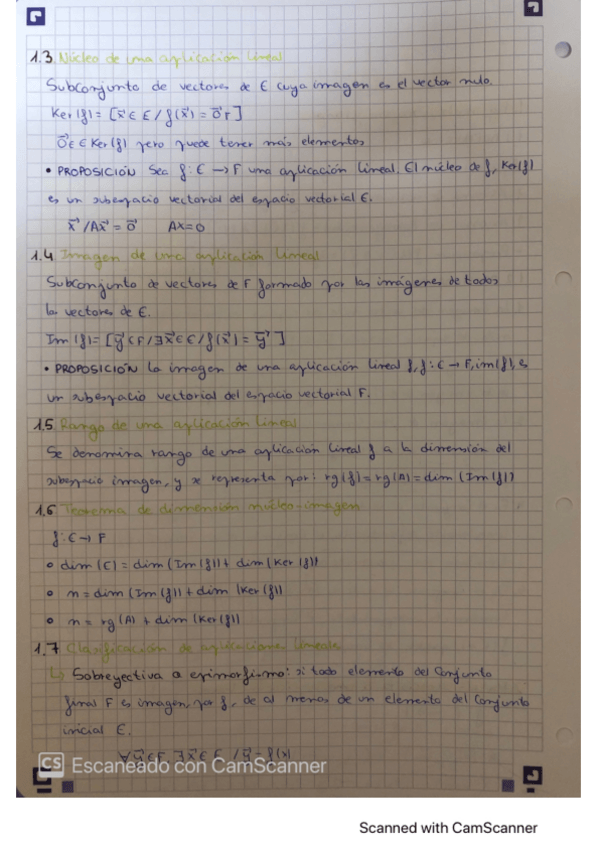 1.3 Núcleo de una aplicación lineal
Subconjunto de vectores de E cuya imagen es el vector nulo.
Ker(f) = [x⃗ ∈ E / f(x⃗) = 0⃗F]
0⃗E ∈ Ker(f) pero puede tener más elementos
• PROPOSICIÓN Sea f: E → F una aplicación lineal. El núcleo de f, Ker(f)
es un subespacio vectorial del espacio vectorial E.
x⃗ / Ax⃗ = 0⃗ AX=0
1.4 Imagen de una aplicación lineal
Subconjunto de vectores de F formado por las imágenes de todos
los vectores de E.
Im(f) = [y⃗ ∈ F / ∃x⃗ ∈ E / f(x⃗) = y⃗]
• PROPOSICIÓN La imagen de una aplicación lineal f, f: E → F, im(f), es
un subespacio vectorial del espacio vectorial F.
1.5 Rango de una aplicación lineal
Se denomina rango de una aplicación lineal f a la dimensión del
subespacio imagen, y se representa por: rg(f) = rg(A) = dim (Im(f))
1.6 Teorema de dimensión núcleo-imagen
f: E → F
o dim (E) = dim (Im(f)) + dim (Ker(f))
o n = dim (Im(f)) + dim (Ker(f))
o n = rg(A) + dim (Ker(f))
1.7 Clasificación de aplicaciones lineales
↳ Sobreyectiva o epimorfismo: si todo elemento del conjunto
final F es imagen, por f, de al menos de un elemento del conjunto
inicial E.
∀y⃗ ∈ F ∃x⃗ ∈ E / y⃗ = f(x)
CS Escaneado con CamScanner
Scanned with CamScanner